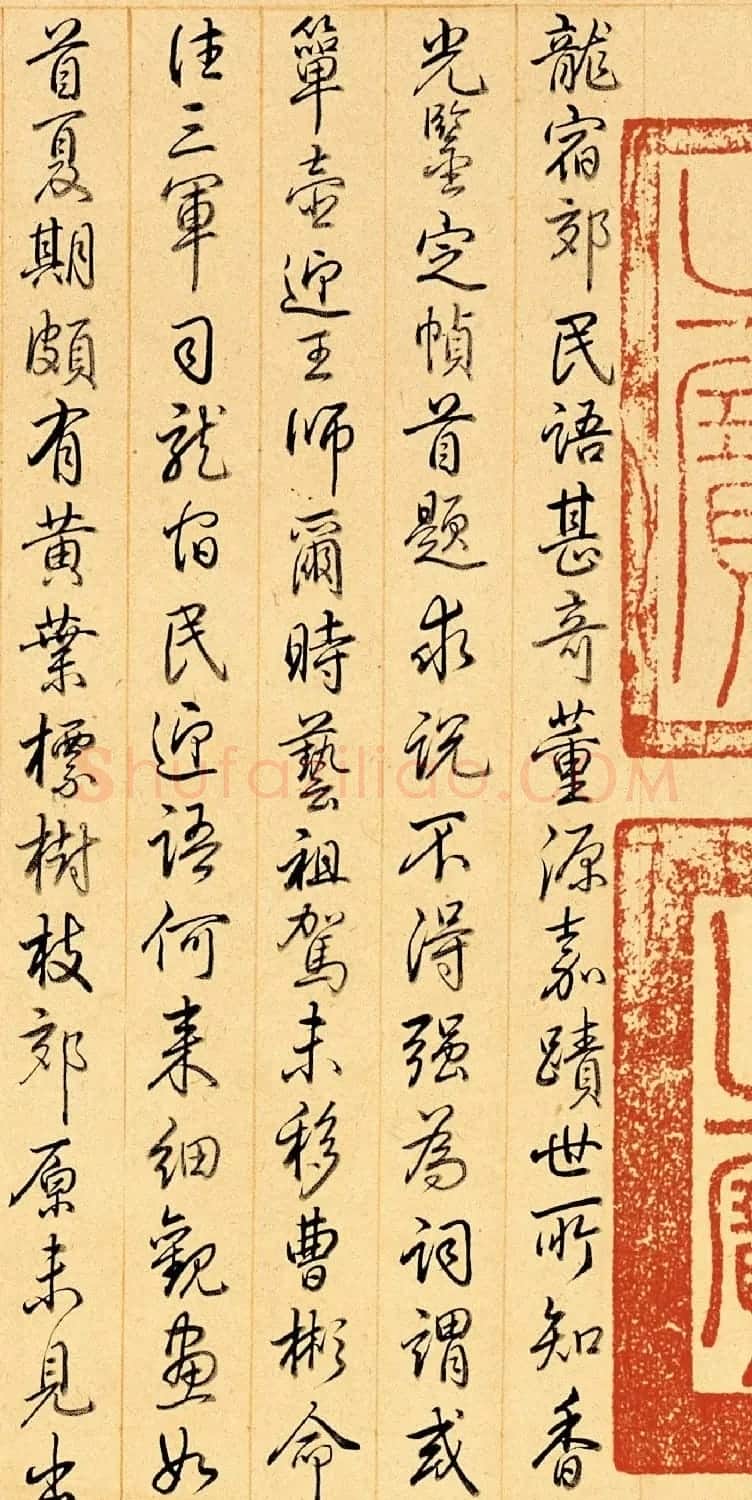 龍宿郊民語甚奇董源嘉蹟世所知香
光鑒定幀首題求说不得强為词謂或
簞壺迎王師爾時藝祖駕未移曹彬命
往三軍司龍宿民迎語何来細觀畫如
首夏期頗有黄葉標樹枝郊原未見
Shufaziliao.COM